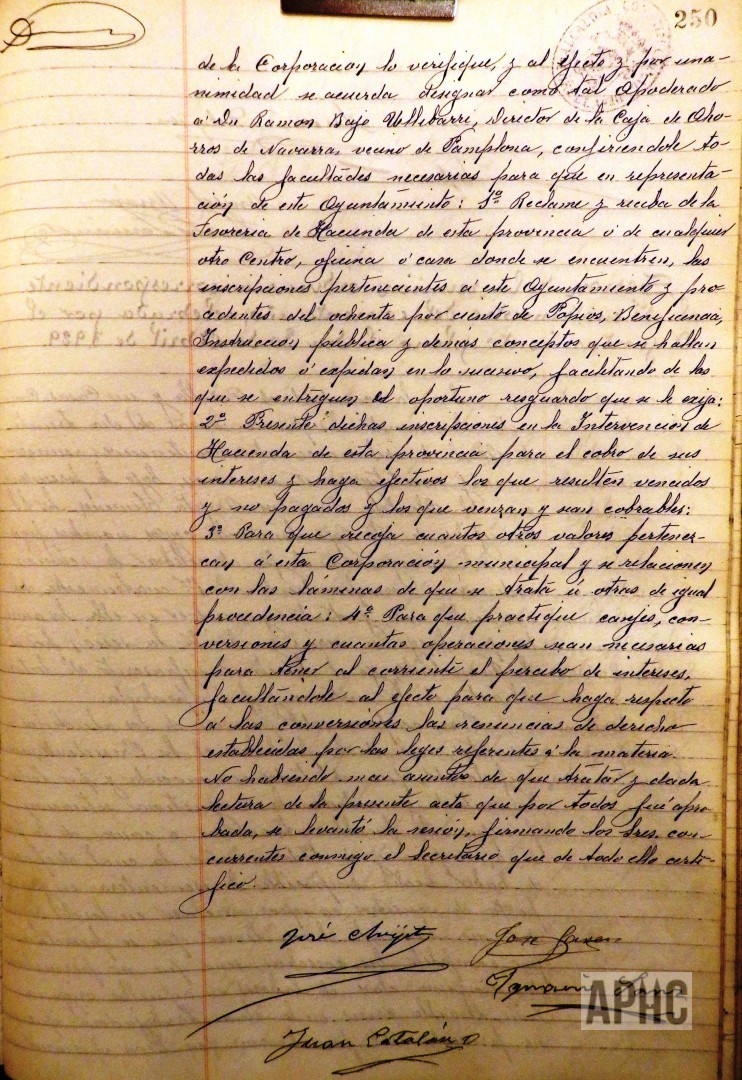 250
de la Corporacion lo verifique, y al efecto y por una-
nimidad se acuerda designar como tal Apoderado
á Dn Ramon Bajo Ullibarri, Director de la Caja de Aho-
rros de Navarra, vecino de Pamplona, confiriendole to-
das las facultades necesarias para que en representa-
ción de este Ayuntamiento: 1º Reclame y reciba de la
Tesoreria de Hacienda de esta provincia ó de cualquier
otro Centro, oficina ó casa donde se encuentren, las
inscripciones pertenecientes á este Ayuntamiento y pro-
cedentes del ochenta por ciento de Propios, Beneficencia,
Instruccion pública y demás conceptos que se hallan
expedidos ó expidan en lo sucesivo, facilitando de las
que se entreguen el oportuno resguardo que se le exija:
2º Presente dichas inscripciones en la Intervencion de
Hacienda de esta provincia para el cobro de sus
intereses y haga efectivos los que resulten vencidos
y no pagados y los que venzan y sean cobrables:
3º Para que recoja cuantos otros valores pertenez-
can á esta Corporación municipal y se relacionen
con las láminas de que se trata ú otras de igual
procedencia: 4º Para que practique canjes, con-
versiones y cuantas operaciones sean necesarias
para tener al corriente el percibo de intereses,
facultándole al efecto para que haga respecto
á las conversiones las renuncias de derecho
establecidas por las leyes referentes á la materia.
No habiendo mas asuntos de que tratar y dada
lectura de la presente acta que por todos fué apro
bada, se levantó la sesión, firmando los Sres. con-
currentes conmigo el Secretario que de todo ello certi-
fico.
José
Juan Catalán
APHC